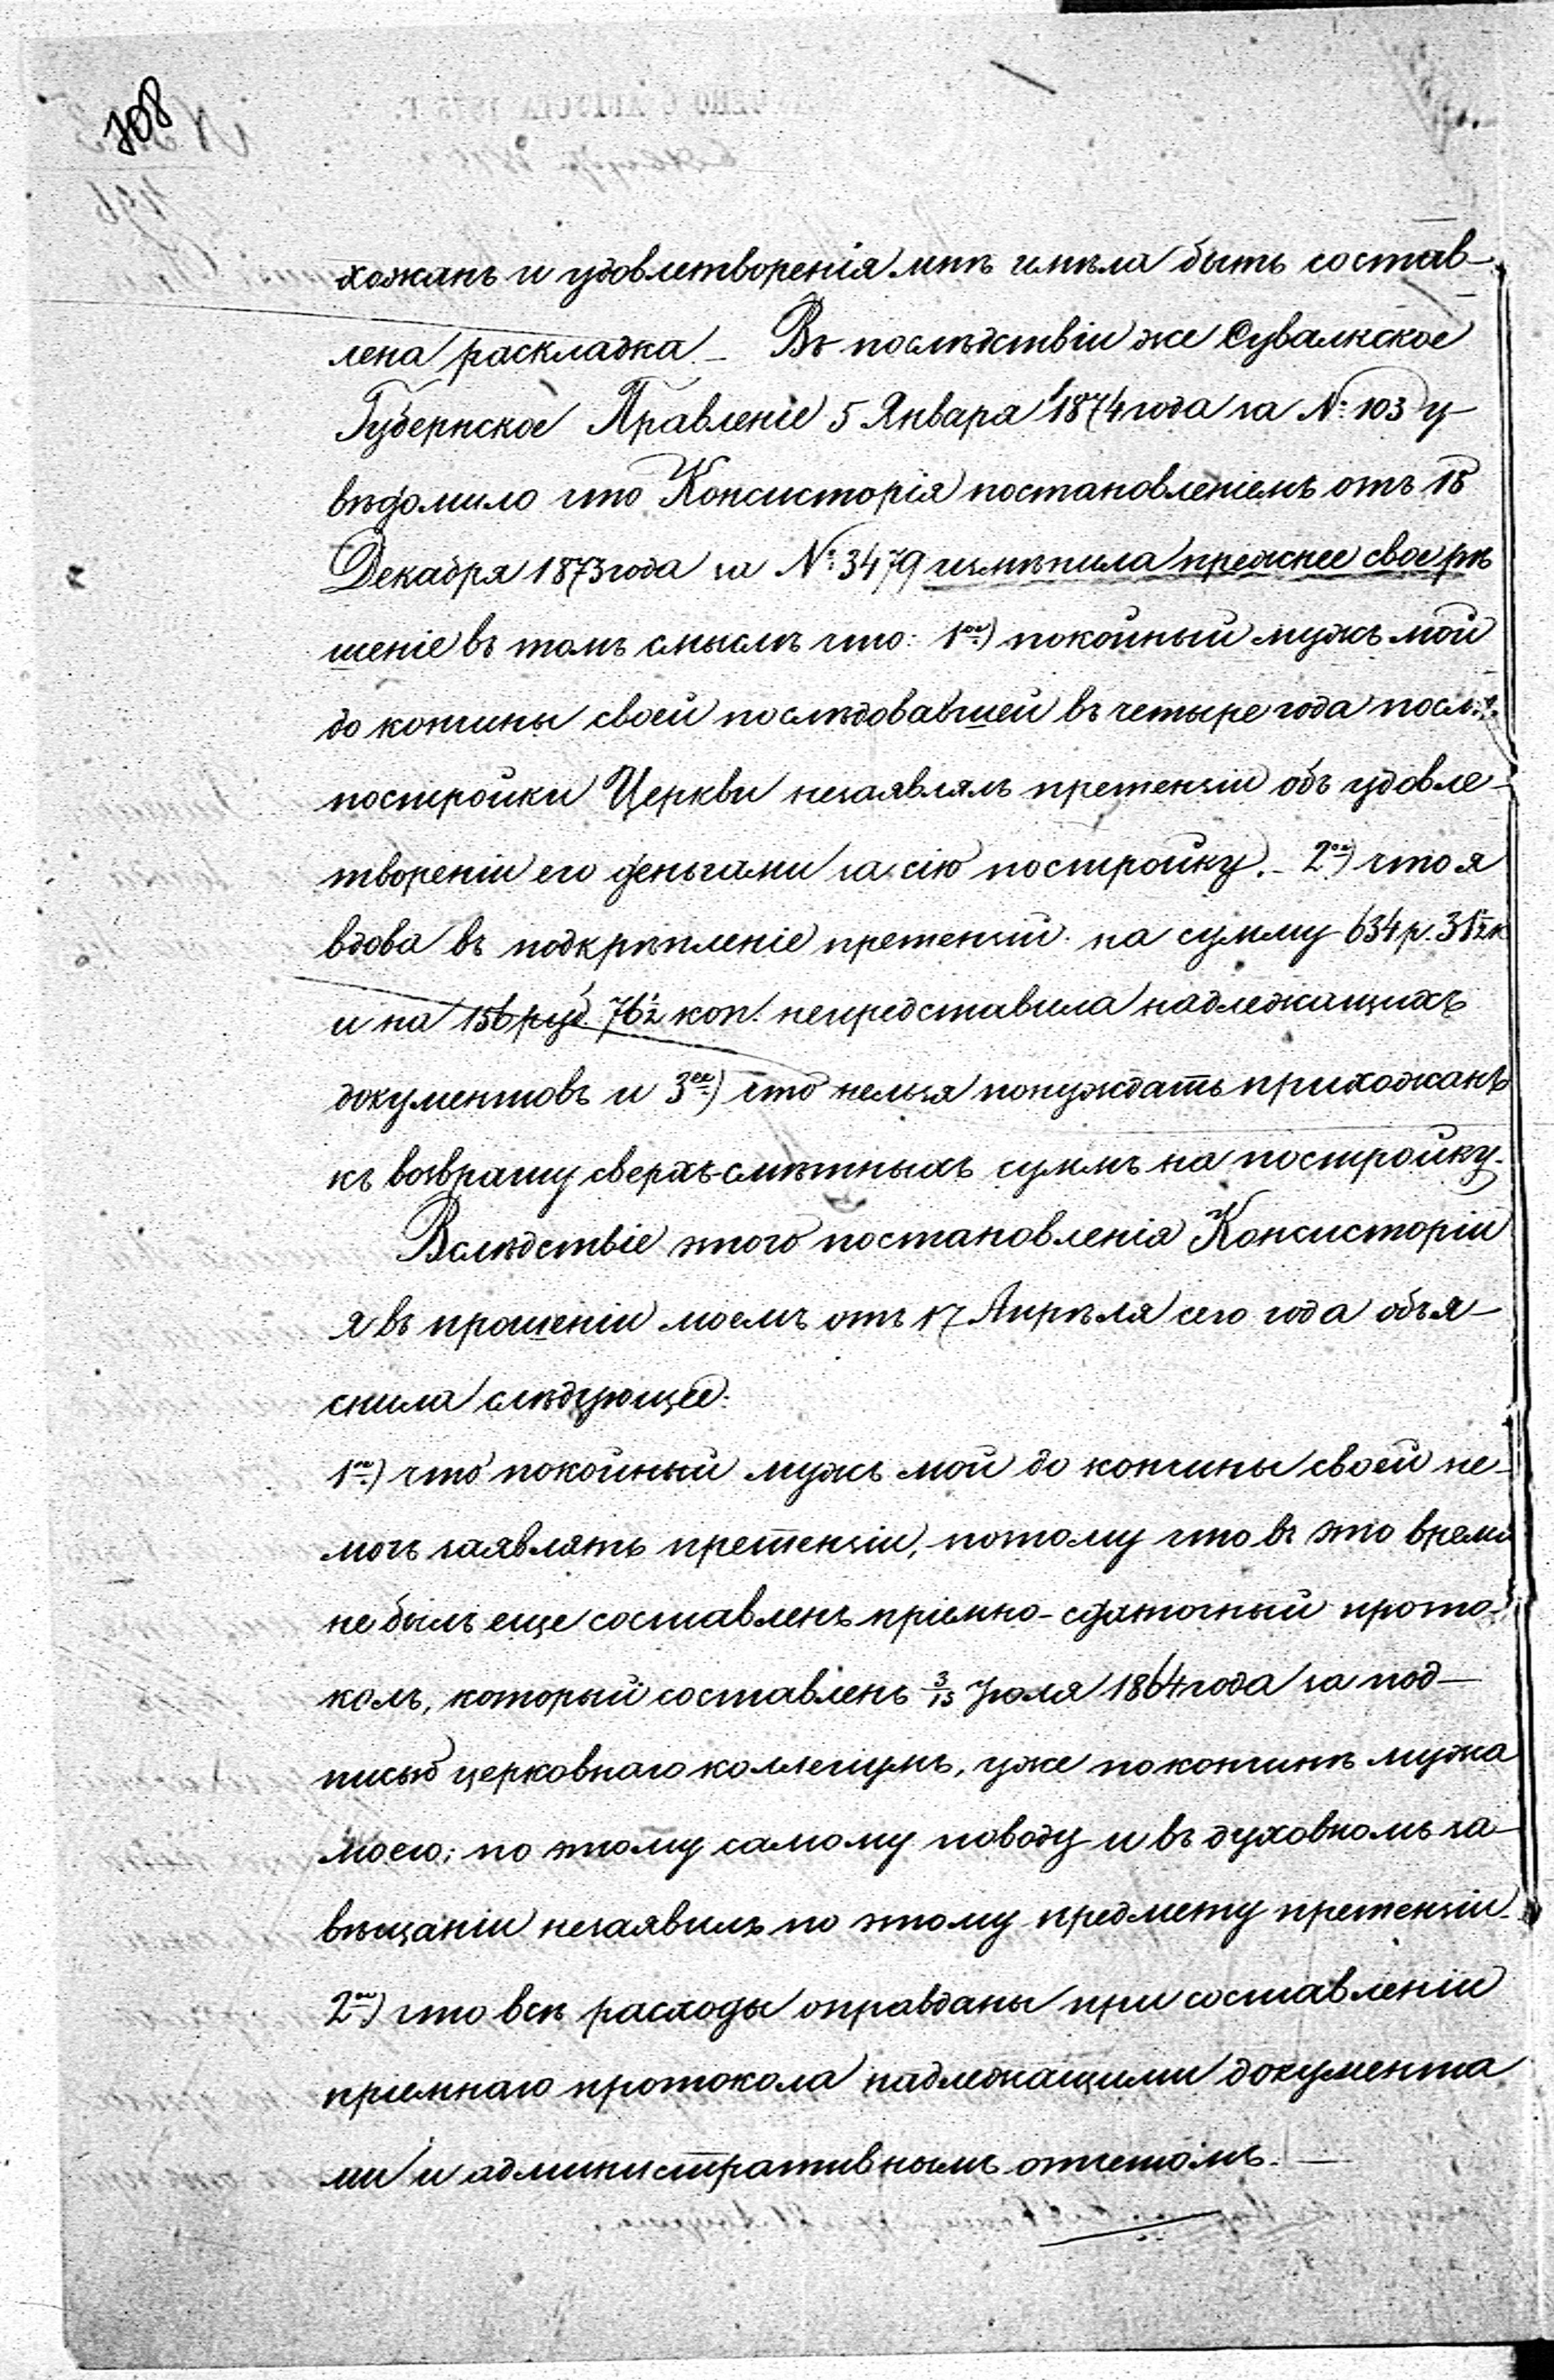 708
хожанъ и удовлетворенія мнѣ имѣла быть состав-
лена раскладка. – Въ послѣдствіи же Сувалкское
Губернское Правленіе 5 Января 1874 года за №: 103 у-
вѣдомило что Консисторія постановленіемъ отъ 18
Декабря 1873 года за №: 3479 измѣнила прежнее свое рѣ
шеніе въ томъ смыслѣ что: 1ое) покойный мужъ мой
до кончины своей послѣдовавшей въ четыре года послѣ
постройки Церкви незаявлялъ претензіи объ удовле-
твореніи его деньгами за сію постройку. – 2ое) что я
вдова въ подкрѣпленіе претензій на сумму 634 р. 31½ к
и на 156 руб. 76½ коп. непредставила надлежащихъ
документовъ и 3ое) что нельзя понуждать прихожанъ
къ возврату сверхъ-смѣтныхъ суммъ на постройку.
Вслѣдствіе этого постановленія Консисторіи
я въ прошеніи моемъ отъ 17 Апрѣля сего года объя-
снила слѣдующее:
1ое) что покойный мужъ мой до кончины своей не-
могъ заявлять претензіи, потому что въ это время
не былъ еще составленъ пріемно-сдаточный прото-
колъ, который составленъ 3/15 Іюля 1864 года за под-
писью церковнаго коллегіумъ, уже по кончинѣ мужа
моего; по этому самому поводу и въ духовномъ за-
вѣщаніи незаявилъ по этому предмету претензіи.
2ое) что всѣ расходы оправданы при составленіи
пріемнаго протокола надлежащими документа
ми и административнымъ отчетомъ. –